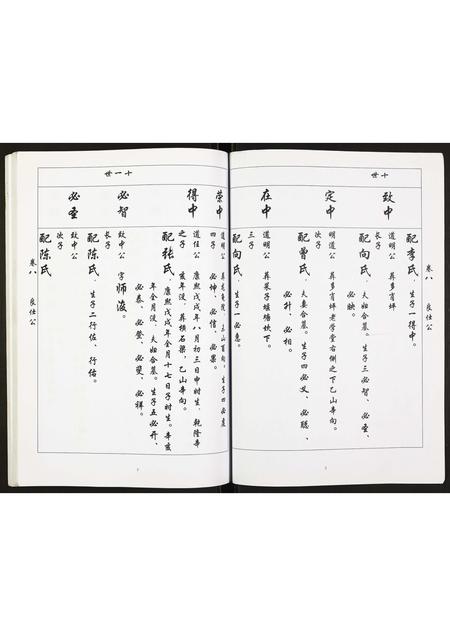 卷八 良仕公
十世
配李氏，生子一得中。
致中
明道公 葬多肖坪
长子
配向氏，夫妇合墓。生子三必智、必圣、
必映。
定中
明道公 葬多肖坪老学堂右侧之下乙山辛向。
次子
配曾氏，夫妻合墓。生子四必义、必聪、
必升、必相。
在中
道明公 葬菜子堰塘坎下。
三子
配向氏，生子一必惠。
荣中
道明公
四子 必坤、必信、必果。
十一世
得中
道任公 康熙戊戌年八月初三日申时生，乾隆辛
之子 亥年没，葬横石梁，乙山辛向。
配张氏，康熙戊戌年全月十七日子时生。辛亥
年全月没，夫妇合墓。生子五必开、
必泰、必登、必斐、必祥。
必智
致中公 字师浚。
长子
配陈氏，生子二行佐、行佑。
必圣
致中公
次子
配陈氏
卷八 良仕公